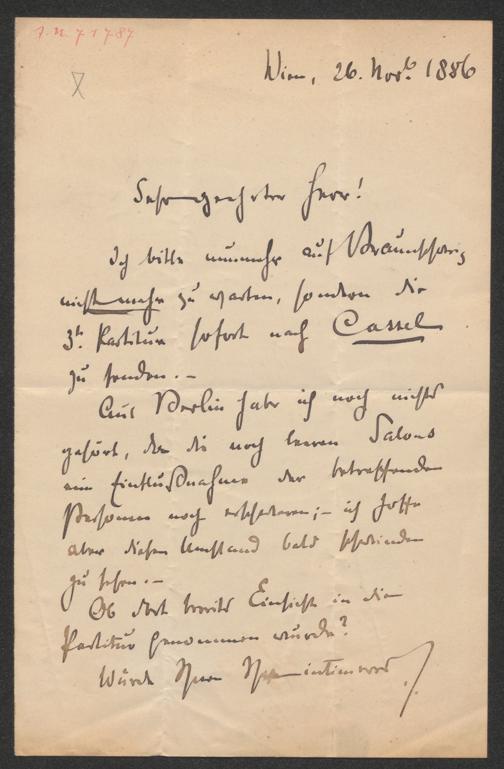 I.N. 71787
Wien, 26. Novb 1886
Sehr geehrter Herr!
Ich bitte nunmehr auf Braunschweig
nicht mehr zu warten, sondern die
3te Partitur sofort nach Cassel
zu senden. –
Aus Berlin habe ich noch nichts
gehört, da die noch leeren Salons
eine Einflußnahme der betreffenden
Personen noch erschweren; – ich hoffe
aber diesen Umstand bald schwinden
zu sehen. –
Ob dort bereits Einsicht in die
Partitur genommen wurde?
Würde Ihnen